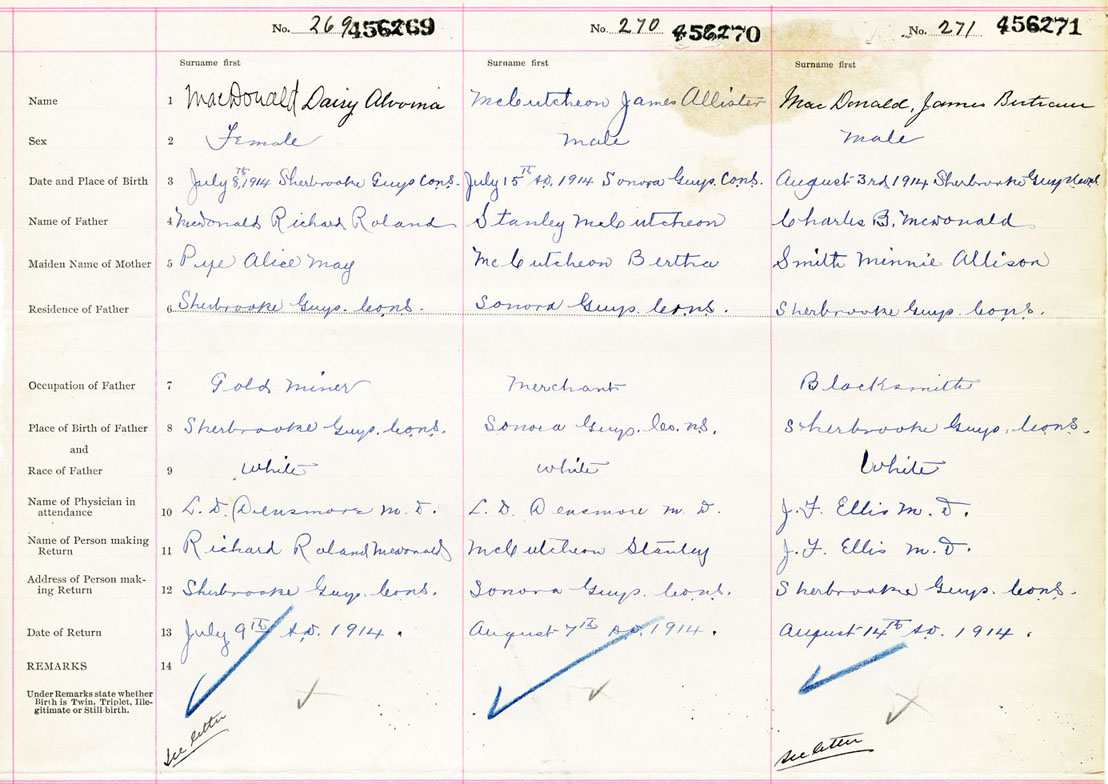 No. 269 456269 No. 270 456270 No. 271 456271
Surname first Surname first Surname first
Name 1 MacDonald Daisy Alvonia McCutcheon James Allister Mac Donald, James Bertram
Sex 2 Female male male
Date and Place of Birth 3 July 8th, 1914 Sherbrooke Guys Cons. July 15th A.D. 1914 Sonora Guys. Cons. August 3rd 1914 Sherbrooke Guys
Name of Father 4 McDonald Richard Roland Stanley McCutcheon Charles B. McDonald
Maiden Name of Mother 5 Pye Alice May McCutcheon Bertha Smith Minnie Allison
Residence of Father 6 Sherbrooke Guys. Cons. Sonora Guys. Cons. Sherbrooke Guys. Cons.
Occupation of Father 7 Gold miner Merchant Blacksmith
Place of Birth of Father 8 Sherbrooke Guys. Cons. Sonora Guys. Co. ns. Sherbrooke Guys. Cons.
and
Race of Father 9 white white White
Name of Physician in
attendance 10 L. D. Densmore M. D. L. D. Densmore M. D. J. F. Ellis M. D.
Name of Person making
Return 11 Richard Roland McDonald McCutcheon Stanley J. F. Ellis M. D.
Address of Person mak-
ing Return 12 Sherbrooke Guys. Cons. Sonora Guys. Cons. Sherbrooke Guys. Cons.
Date of Return 13 July 9th A.D. 1914. August 7th A.D. 1914. August 14th A.D. 1914.
REMARKS 14
Under Remarks state whether
Birth is Twin, Triplet, Ille-
gitimate or Still birth.
see letter see letter